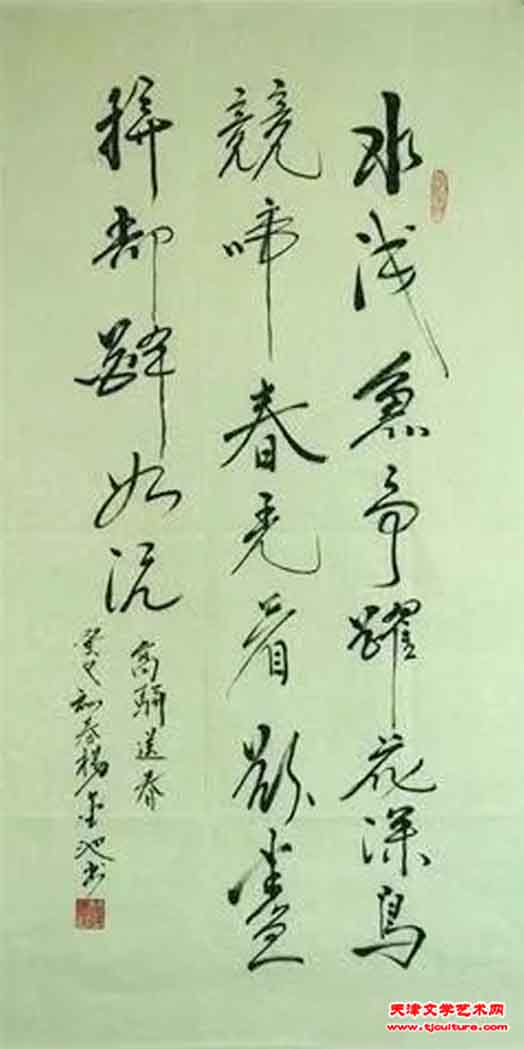 水浅魚争躍花深鳥
競啼春光看欲盡
拚却醉如泥
高駢送春
癸巳初春楊金池书
天津文学艺术网
www.tjculture.com